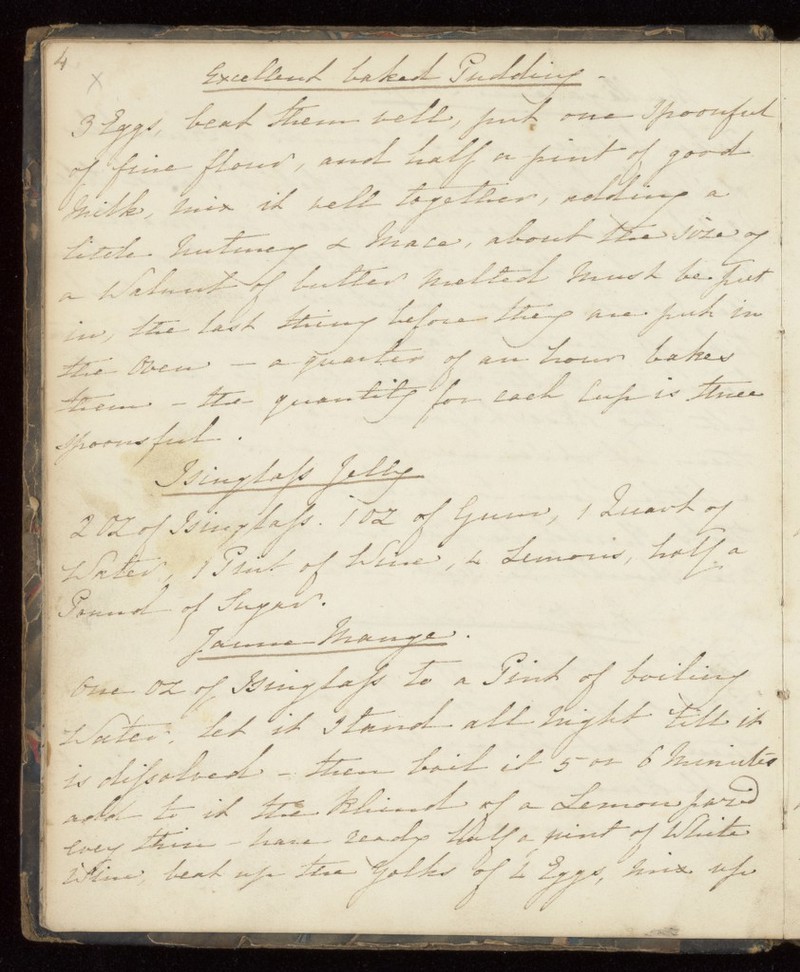 4
x
Excellent baked Pudding -
3 Eggs, beat them well, put one Spoonful
of fine flour, and half a pint of good
Milk, mix it well together, adding a
little Nutmeg & Mace, about the size of
a Walnut of butter Melted Must be put
in, the last thing before they are put in
the Oven - a quarter of an hour bakes
them - the quantity for each Cup is three
spoonsful.
Isinglass Jelly
2 oz of Isinglass. 1 oz of Gum, 1 Quart of
Water, 1 Pint of Wine, 4 Lemons, half a
Pound of Sugar.
Jaune Mange.
One oz of Isinglass to a Pint of boiling
Water, let it Stand all Night till it
is dissolved - then boil it 5 or 6 Minutes
add to it the Rhind of a Lemon pared
very thin - have ready half a pint of White
Wine, beat up the Yolks of Eggs, Mix up